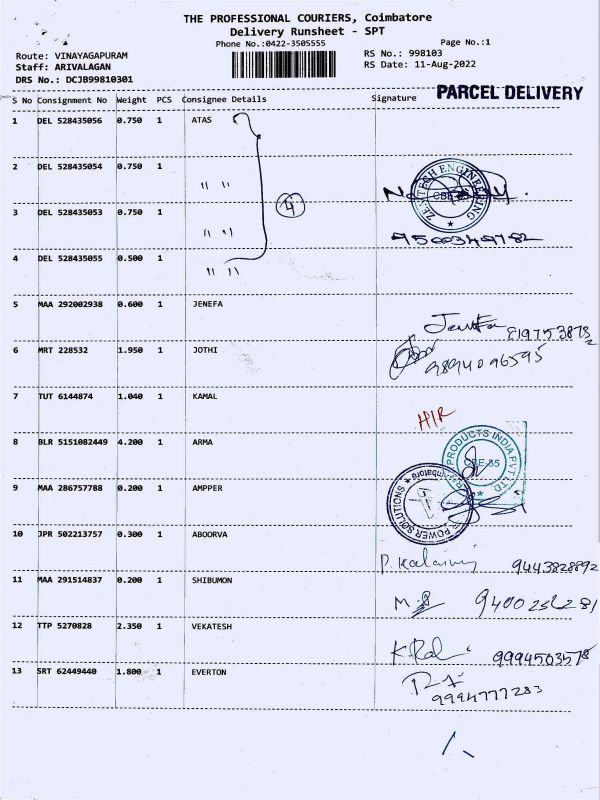 THE PROFESSIONAL COURIERS, Coimbatore
Delivery Runsheet - SPT
Phone No.:0422-3505555
Page No.:1
Route: VINAYAGAPURAM
RS No.: 998103
Staff: ARIVALAGAN
RS Date: 11-Aug-2022
DRS No.: DCJB99810301
PARCEL DELIVERY
S No Consignment No Weight PCS Consignee Details Signature
1 DEL 528435056 0.750 1 ATAS
2 DEL 528435054 0.750 1
" "
4
ZENTECH ENGINEERING
CBE
3 DEL 528435053 0.750 1
" "
9500349782
4 DEL 528435055 0.500 1
" "
5 MAA 292002938 0.600 1 JENEFA
Jenefa
6 MRT 228532 1.950 1 JOTHI
9894096595
7 TUT 6144874 1.040 1 KAMAL
H/R
8 BLR 5151082449 4.200 1 ARMA
PRODUCTS INDIA PVT LTD
CBE-35
9 MAA 286757788 0.200 1 AMPPER
POWER SOLUTIONS
Coimbatore
10 JPR 502213757 0.300 1 ABOORVA
P. Kalaivani 9443828892
11 MAA 291514837 0.200 1 SHIBUMON
9400252281
12 TTP 5270828 2.350 1 VEKATESH
9994503578
13 SRT 62449440 1.800 1 EVERTON
9994777283